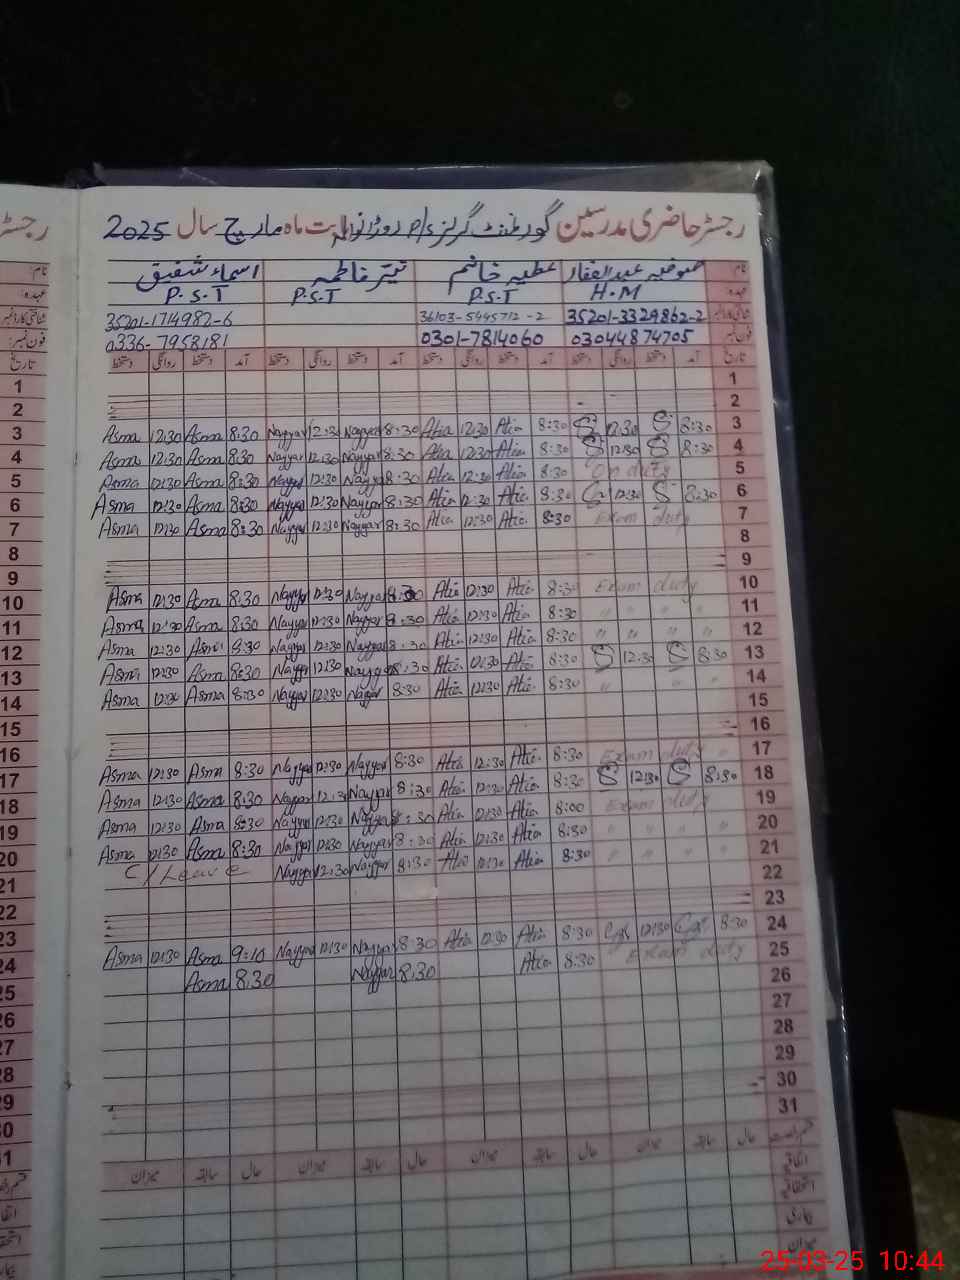 رجسٹر حاضری مدرسین گورنمنٹ گرلز بابت ماہ مارچ سال 2025
نام: صوفیہ عبدالغفار عطیہ خانم نیئر فاطمہ اسماء شفیق
عہدہ: H.M P.S.T P.S.T P.S.T
شناختی کارڈ نمبر 35201-3329862-2 36103-5445712-2 35201-1714982-6
فون نمبر: 03044874705 0301-7814060 0336-7958181
تاریخ آمد دستخط روانگی دستخط آمد دستخط روانگی دستخط آمد دستخط روانگی دستخط آمد دستخط روانگی دستخط
1
2
Asma 12:30 Asma 8:30 Nayyar 12:30 Nayyar 8:30 Atia 12:30 Atia 8:30 S 12:30 S 8:30 3
Asma 12:30 Asma 8:30 Nayyar 12:30 Nayyar 8:30 Atia 12:30 Atia 8:30 S 12:30 S 8:30 4
Asma 12:30 Asma 8:30 Nayyar 12:30 Nayyar 8:30 Atia 12:30 Atia 8:30 On duty 5
Asma 12:30 Asma 8:30 Nayyar 12:30 Nayyar 8:30 Atia 12:30 Atia 8:30 S 12:30 S 8:30 6
Asma 12:30 Asma 8:30 Nayyar 12:30 Nayyar 8:30 Atia 12:30 Atia 8:30 Exam duty 7
8
9
Asma 12:30 Asma 8:30 Nayyar 12:30 Nayyar 8:30 Atia 12:30 Atia 8:30 Exam duty 10
Asma 12:30 Asma 8:30 Nayyar 12:30 Nayyar 8:30 Atia 12:30 Atia 8:30 " " " " 11
Asma 12:30 Asma 8:30 Nayyar 12:30 Nayyar 8:30 Atia 12:30 Atia 8:30 " " " " 12
Asma 12:30 Asma 8:30 Nayyar 12:30 Nayyar 8:30 Atia 12:30 Atia 8:30 S 12:30 S 8:30 13
Asma 12:30 Asma 8:30 Nayyar 12:30 Nayyar 8:30 Atia 12:30 Atia 8:30 " " " " 14
15
16
Asma 12:30 Asma 8:30 Nayyar 12:30 Nayyar 8:30 Atia 12:30 Atia 8:30 Exam duty " 17
Asma 12:30 Asma 8:30 Nayyar 12:30 Nayyar 8:30 Atia 12:30 Atia 8:30 S 12:30 S 8:30 18
Asma 12:30 Asma 8:30 Nayyar 12:30 Nayyar 8:30 Atia 12:30 Atia 8:00 Exam duty 19
Asma 12:30 Asma 8:30 Nayyar 12:30 Nayyar 8:30 Atia 12:30 Atia 8:30 " " " " 20
C/Leave Nayyar 12:30 Nayyar 8:30 Atia 12:30 Atia 8:30 " " " " 21
22
23
Asma 12:30 Asma 9:10 Nayyar 12:30 Nayyar 8:30 Atia 12:30 Atia 8:30 12:30 8:30 24
Asma 8:30 Nayyar 8:30 Atia 8:30 Exam duty 25
26
27
28
29
30
31
حال سابقہ میزان حال سابقہ میزان حال سابقہ میزان حال سابقہ میزان
اتفاقیہ
میزان
25-03-25 10:44